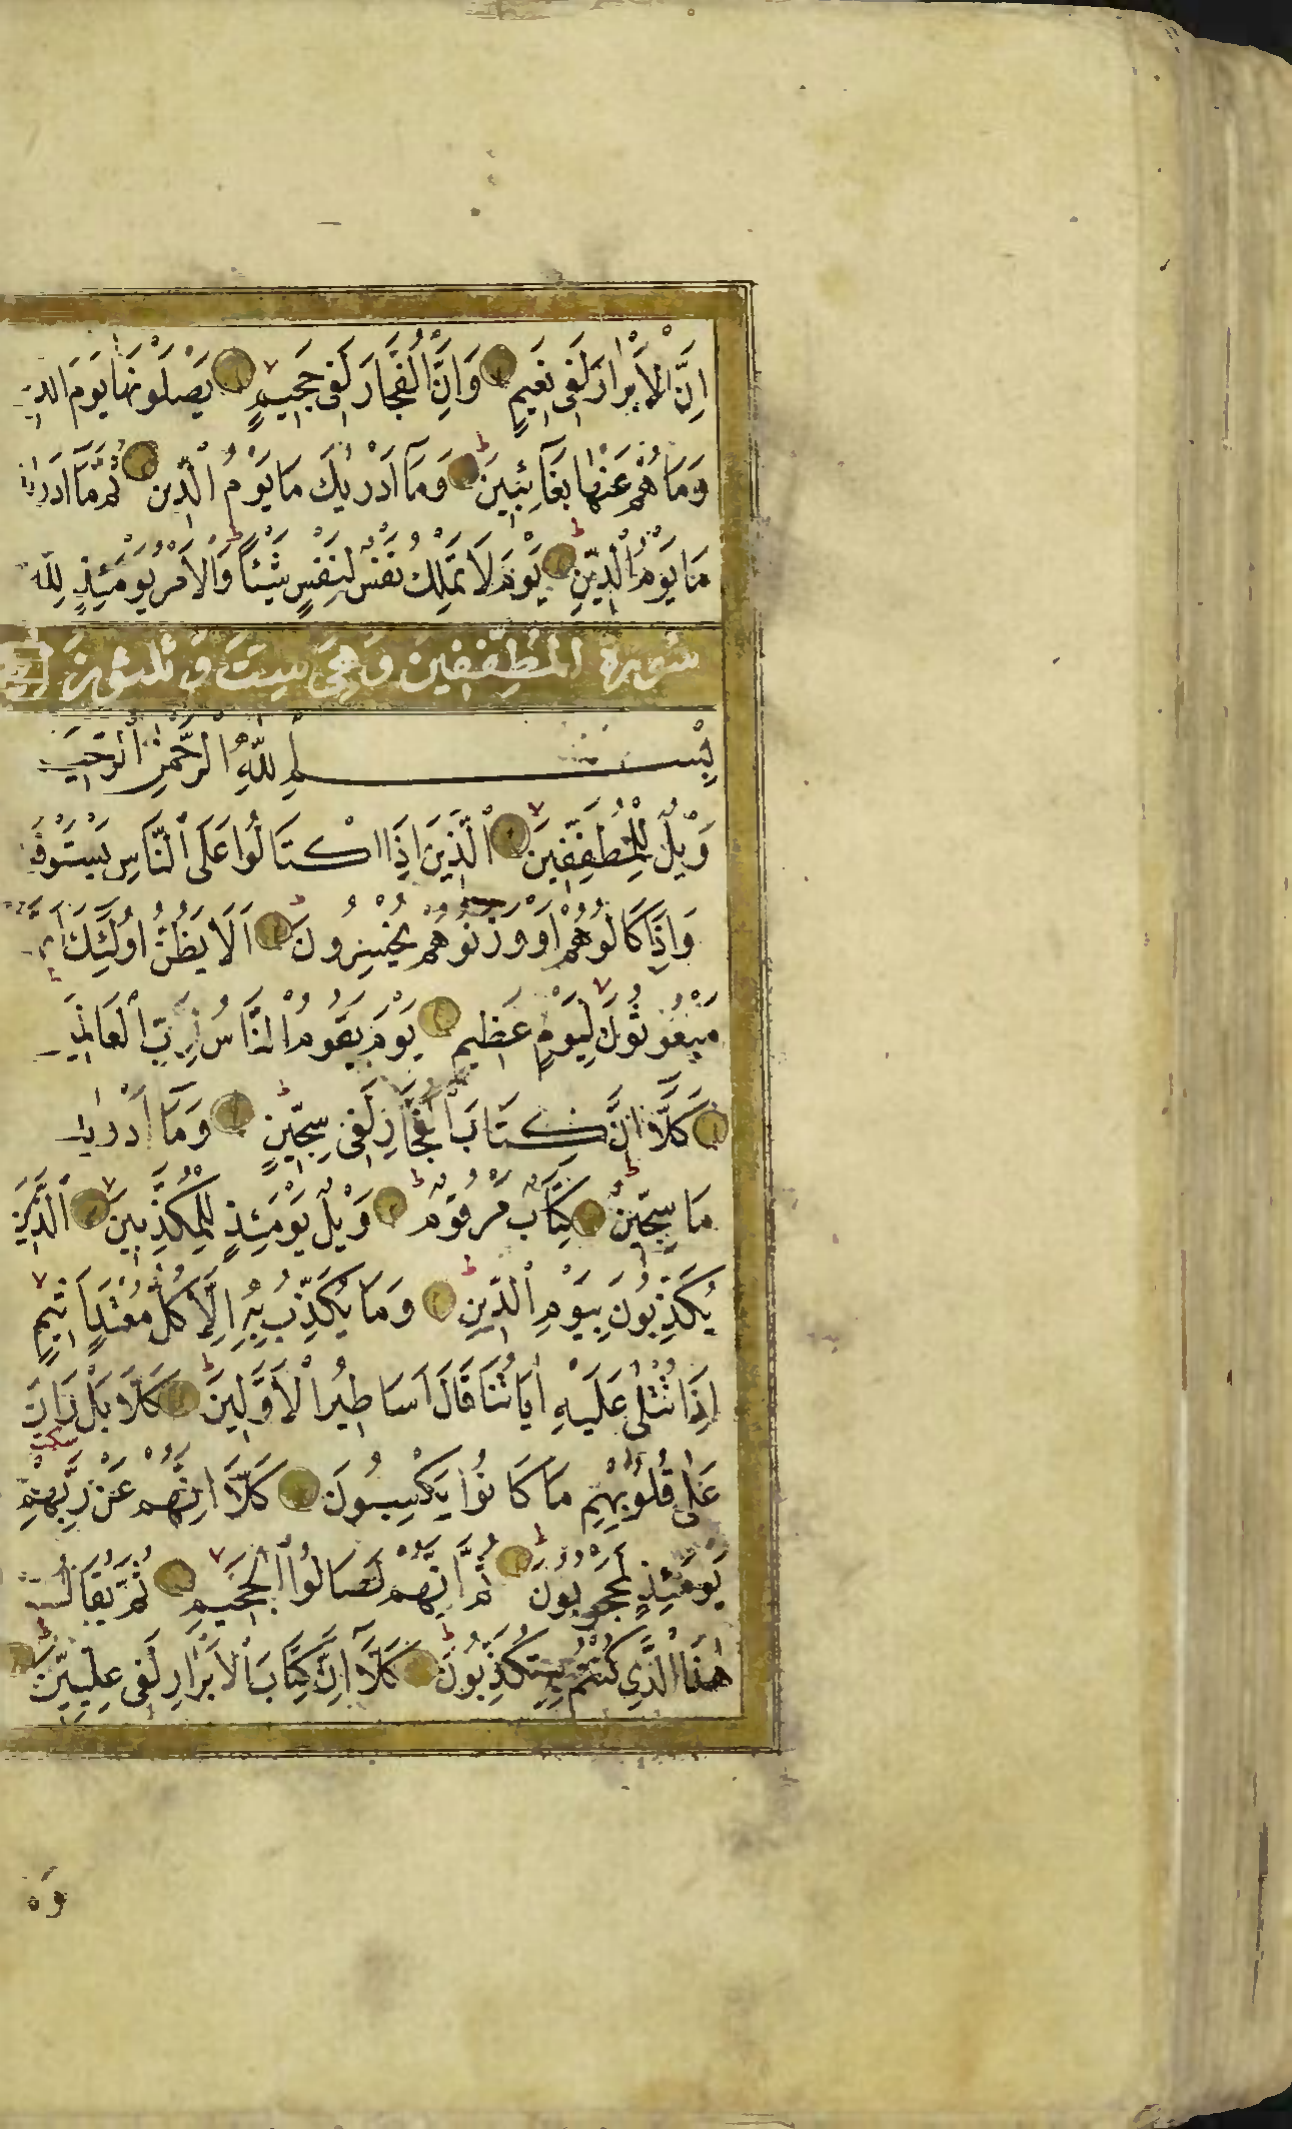 اِنَّ الْاَبْرَارَ لَفِى نَعِيمٍ وَاِنَّ الْفُجَّارَ لَفِى جَحِيمٍ يَصْلَوْنَهَا يَوْمَ
وَمَا هُمْ عَنْهَا بِغَآئِبِينَ وَمَآ اَدْرٰيكَ مَا يَوْمُ الدِّينِ ثُمَّ مَآ
مَا يَوْمُ الدِّينِ يَوْمَ لَا تَمْلِكُ نَفْسٌ لِنَفْسٍ شَيْئًا وَالْاَمْرُ يَوْمَئِذٍ لِلّٰهِ
سُورَةُ الْمُطَفِّفِينَ وَهِىَ سِتَّ وَثَلٰثُونَ
بِسْمِ اللّٰهِ الرَّحْمٰنِ
وَيْلٌ لِلْمُطَفِّفِينَ اَلَّذِينَ اِذَا اكْتَالُوا عَلَى النَّاسِ
وَاِذَا كَالُوهُمْ اَوْ وَزَنُوهُمْ يُخْسِرُونَ اَلَا يَظُنُّ اُولٰٓئِكَ
مَبْعُوثُونَ لِيَوْمٍ عَظِيمٍ يَوْمَ يَقُومُ النَّاسُ لِرَبِّ
كَلَّآ اِنَّ كِتَابَ الْفُجَّارِ لَفِى سِجِّينٍ وَمَآ
مَا سِجِّينٌ كِتَابٌ مَرْقُومٌ وَيْلٌ يَوْمَئِذٍ لِلْمُكَذِّبِينَ اَلَّذِينَ
يُكَذِّبُونَ بِيَوْمِ الدِّينِ وَمَا يُكَذِّبُ بِهٖٓ اِلَّا كُلُّ مُعْتَدٍ اَثِيمٍ
اِذَا تُتْلٰى عَلَيْهِ اٰيَاتُنَا قَالَ اَسَاطِيرُ الْاَوَّلِينَ كَلَّا بَلْ رَانَ
عَلٰى قُلُوبِهِمْ مَا كَانُوا يَكْسِبُونَ كَلَّآ اِنَّهُمْ عَنْ رَبِّهِمْ
يَوْمَئِذٍ لَمَحْجُوبُونَ ثُمَّ اِنَّهُمْ لَصَالُوا الْجَحِيمِ ثُمَّ يُقَالُ
هٰذَا الَّذِى كُنْتُمْ بِهٖ تُكَذِّبُونَ كَلَّآ اِنَّ كِتَابَ الْاَبْرَارِ لَفِى عِلِّيِّينَ